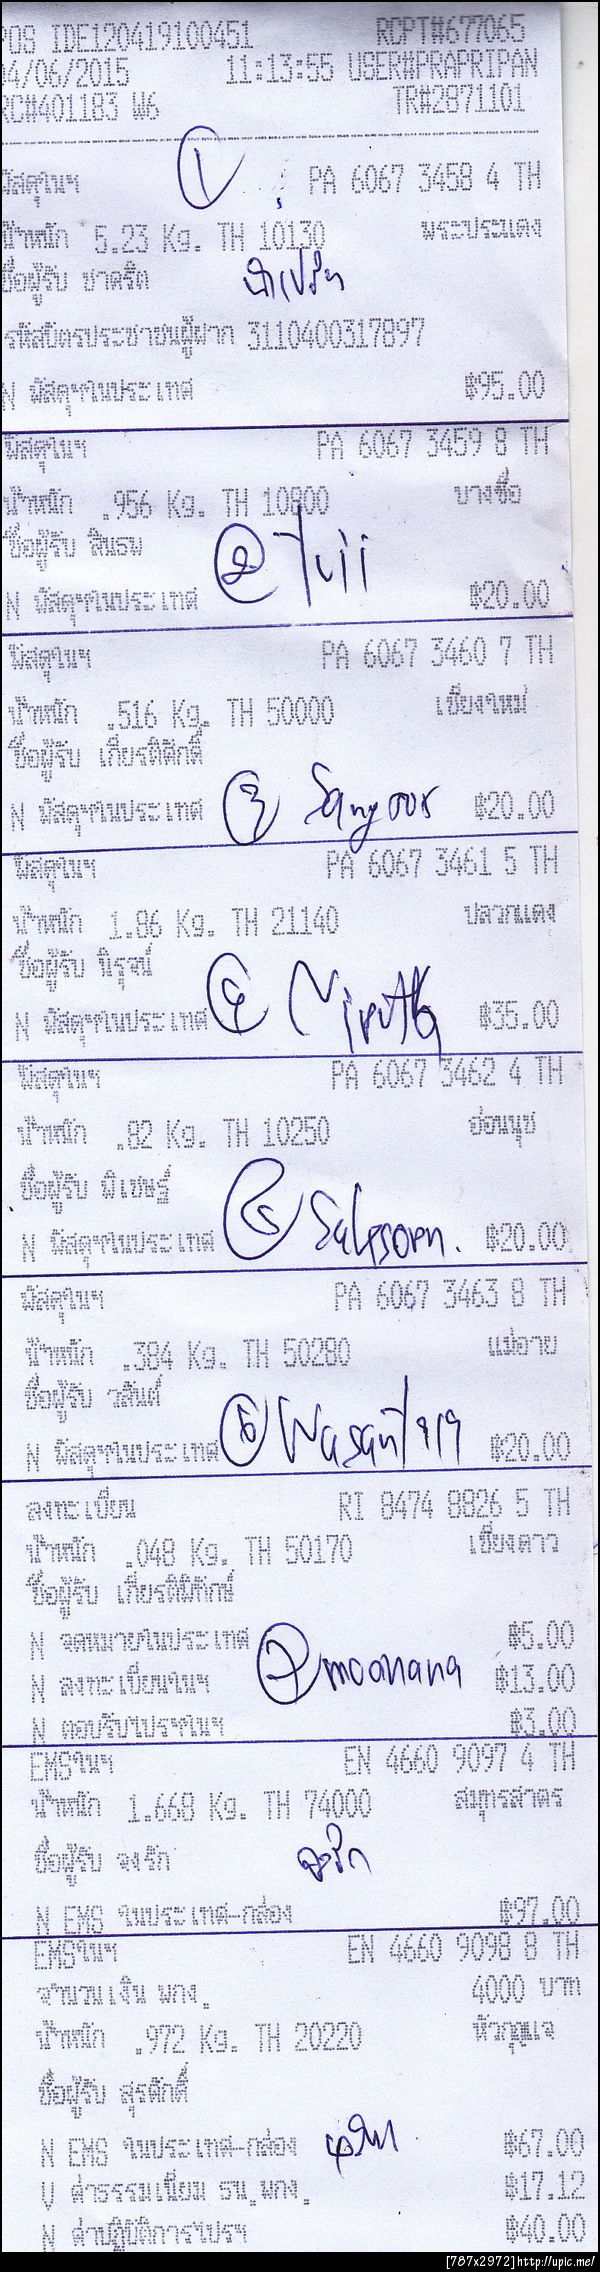 POS IDE120419100451 RCPT#677065
04/06/2015 11:13:55 USER#PRAPRIPAN
RC#401183 W6 TR#2871101
พัสดุในฯ 1 PA 6067 3458 4 TH
น้ำหนัก 5.23 Kg. TH 10130 พระประแดง
ชื่อผู้รับ ชาคริต
รหัสบัตรประชาชนผู้ฝาก 3110400317897
N พัสดุฯในประเทศ ฿95.00
พัสดุในฯ PA 6067 3459 8 TH
น้ำหนัก .956 Kg. TH 10800 บางซื่อ
ชื่อผู้รับ สินธม
2
N พัสดุฯในประเทศ ฿20.00
พัสดุในฯ PA 6067 3460 7 TH
น้ำหนัก .516 Kg. TH 50000 เชียงใหม่
ชื่อผู้รับ เกียรติศักดิ์
N พัสดุฯในประเทศ 3 ฿20.00
พัสดุในฯ PA 6067 3461 5 TH
น้ำหนัก 1.86 Kg. TH 21140 ปลวกแดง
ชื่อผู้รับ นิรุจน์
N พัสดุฯในประเทศ 4 Niruth ฿35.00
พัสดุในฯ PA 6067 3462 4 TH
น้ำหนัก .82 Kg. TH 10250 อ่อนนุช
ชื่อผู้รับ พิเชษฐ์
N พัสดุฯในประเทศ 5 ฿20.00
พัสดุในฯ PA 6067 3463 8 TH
น้ำหนัก .384 Kg. TH 50280 แม่อาย
ชื่อผู้รับ วสันต์
N พัสดุฯในประเทศ 6 ฿20.00
ลงทะเบียน RI 8474 8826 5 TH
น้ำหนัก .048 Kg. TH 50170 เชียงดาว
ชื่อผู้รับ เกียรติพิทักษ์
N จดหมายในประเทศ ฿5.00
7 moonana
N ลงทะเบียนในฯ ฿13.00
N ตอบรับไปรฯในฯ ฿3.00
EMSในฯ EN 4660 9097 4 TH
น้ำหนัก 1.668 Kg. TH 74000 สมุทรสาคร
ชื่อผู้รับ จงรัก
N EMS ในประเทศ-กล่อง ฿97.00
EMSในฯ EN 4660 9098 8 TH
จำนวนเงิน พกง. 4000 บาท
น้ำหนัก .972 Kg. TH 20220 หัวกุญแจ
ชื่อผู้รับ สุรศักดิ์
N EMS ในประเทศ-กล่อง ฿67.00
V ค่าธรรมเนียม ธน.พกง. ฿17.12
N ค่าปฏิบัติการไปรฯ ฿40.00
[787x2972]http://upic.me/